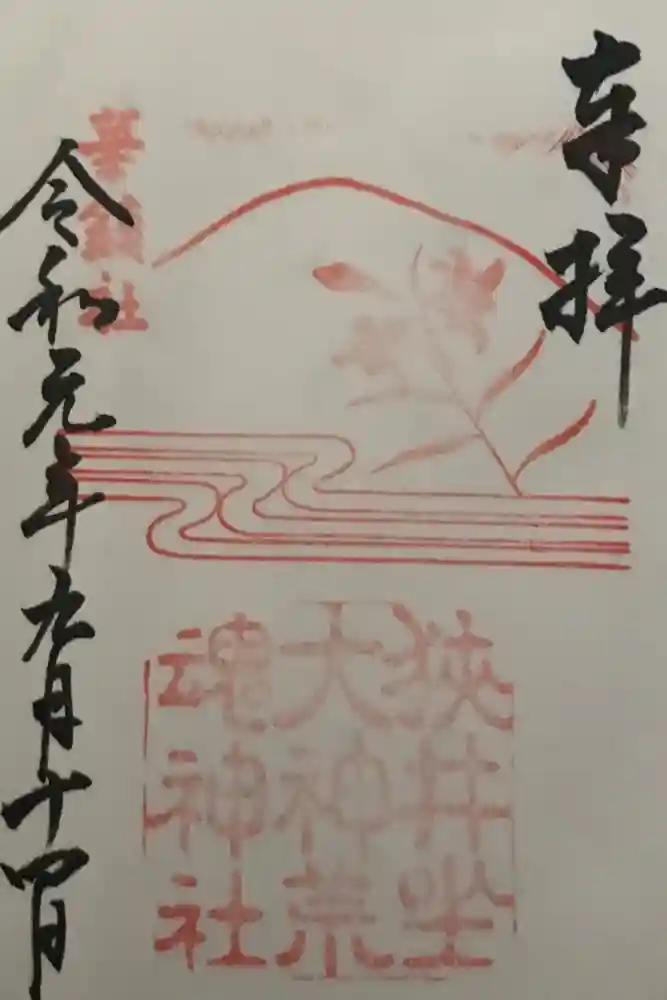 奉拝
狭井坐
大神荒
魂神社
華鎮社
令和元年九月十四日